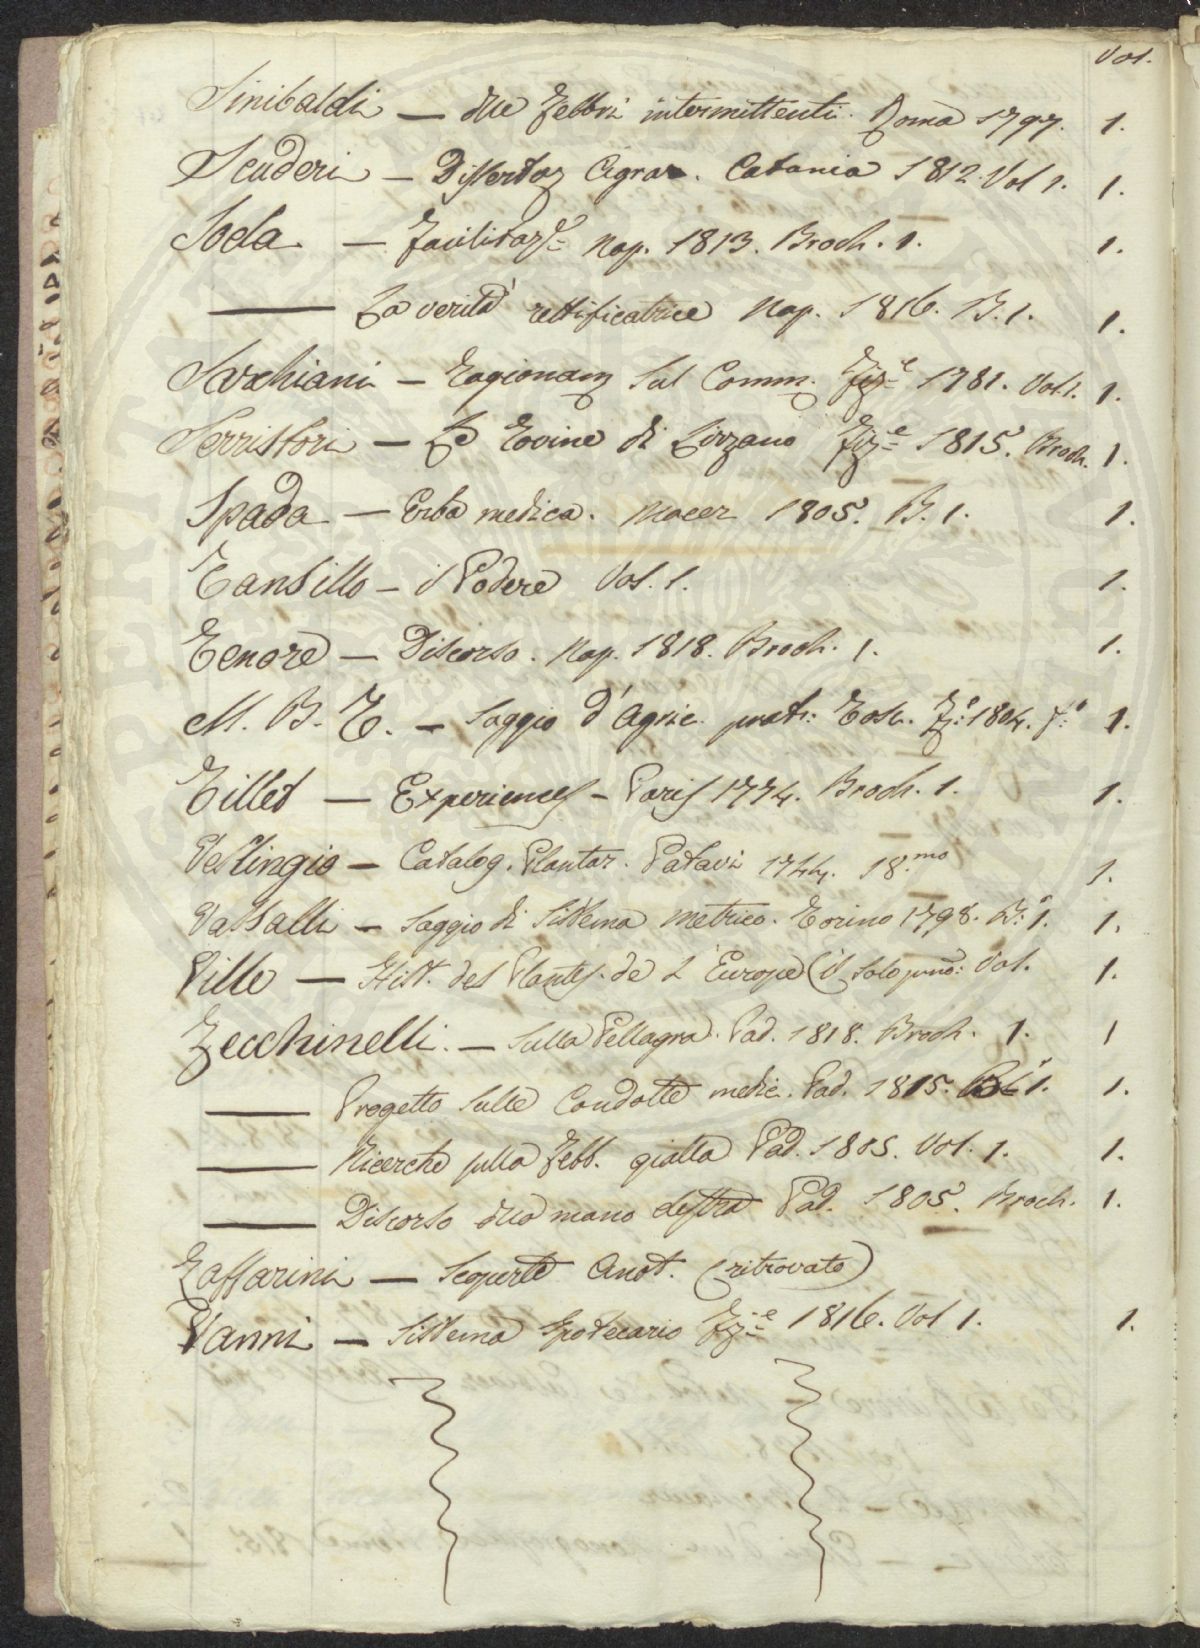 Vol.
Sinibaldi — Sulle Febbri intermittenti. Roma 1797. 1.
Scuderi — Dissertaz Agrar. Catania 1812. Vol 1. 1.
Sola — Nap. 1813. Broch. 1. 1.
—— La verità rettificatrice Nap. 1816. B. 1. 1.
Sarchiani — Ragionam Sul Comm. Fiz.e 1781. Vol. 1. 1.
Serristori — Le Rovine di Fiz.e 1815. Broch. 1.
Spada — Erba medica. Macer 1805. B. 1. 1.
Tansillo — il Podere Vol. 1. 1.
Tenore — Discorso. Nap. 1818. Broch. 1. 1.
M. B. T. — Saggio d'Agric. prat: Tosc. 1804. 1.
Tillet — Experiences — Paris 1774. Broch. 1. 1.
Veslingio — Catalog. Plantar. Patavi 1744. 18.mo 1.
Vassalli — Saggio di Sistema metrico. Torino 1798. B. 1. 1.
Ville — Hist. des Plantes de L'Europe (il solo pmo: Vol. 1.
Zecchinelli. — Sulla Pellagra. Pad. 1818. Broch. 1. 1
—— Progetto Sulle Condotte medic. Pad. 1815. 1. 1.
—— Ricerche sulla Febb. gialla Pad. 1805. Vol. 1. 1.
—— Discorso sulla mano destra Pad. 1805. Broch. 1.
Zaffarini — Scoperte Anot. (ritrovato)
Vanni — Sistema Ipotecario Fiz.e 1816. Vol 1. 1.